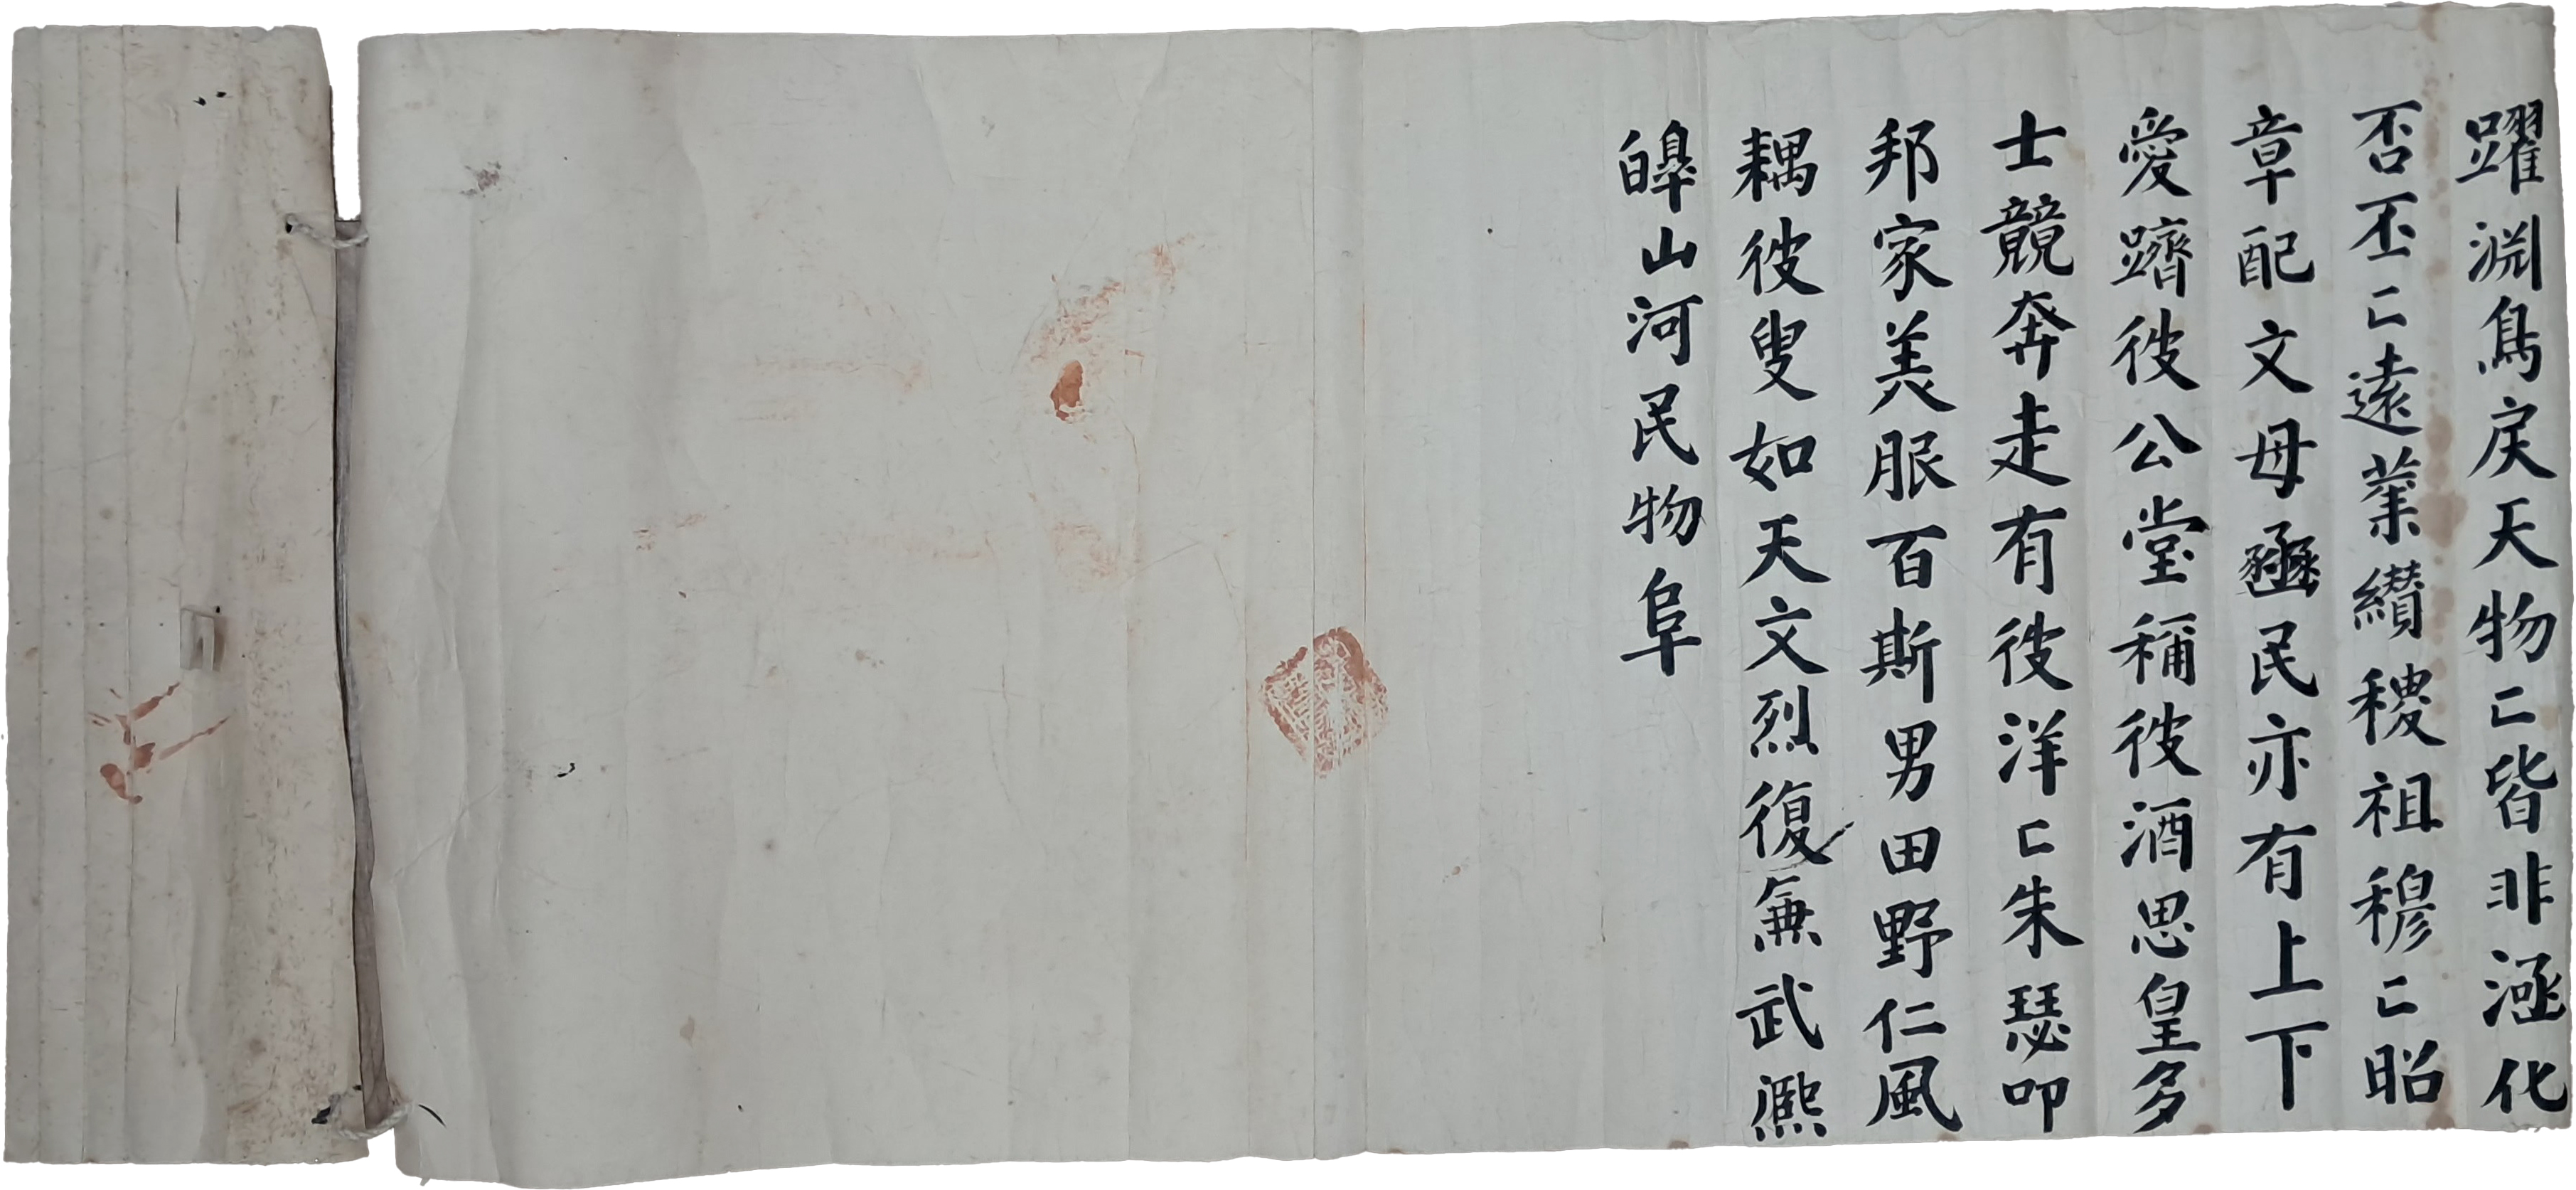 躍淵鳥戾天物〻皆非涵化
否丕〻遠業纘稷祖穆〻昭
章配文母豳民亦有上下
愛躋彼公堂稱彼酒思皇多
士競奔走有彼洋〻朱瑟叩
邦家美服百斯男田野仁風
耦彼叟如天文烈復兼武熙
皞山河民物阜